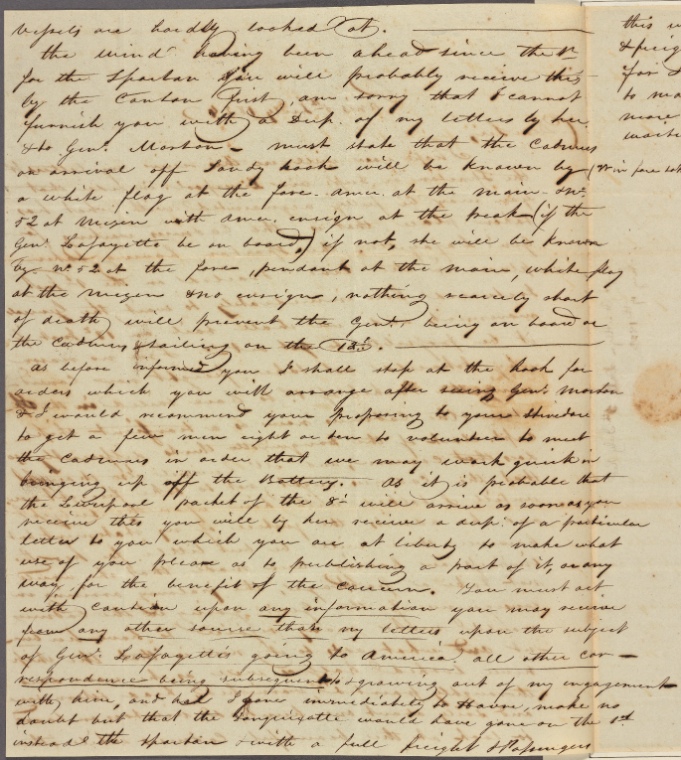 Vessels are hardly looked at.
The wind having been ahead since the 1st
for the Spartan you will probably receive this
by the Canton first, am sorry that I cannot
furnish you with a Dup. of my letters by her
& to Genl. Morton - must state that the Cadmus
on arrival off Sandy hook will be known by
a white flag at the fore. Amer. at the main. & No.
52 at Mizen with Amer. ensign at the peak (if the
Genl. Lafayette be on board) if not, she will be known
by No 52 at the fore, pendant at the main, white flag
at the mizen & no ensign, nothing scarcely short
of death will prevent the Genl. being on board or
the Cadmus sailing on the 12th.
As before informed you I shall stop at the hook for
orders which you will arrange after seeing Genl. Morton
& I would recommend your proposing to your Stevedore
to get a few men eight or ten to volunteer to meet
the Cadmus in order that we may work quick in
bringing up off the Battery. As it is probable that
the Liverpool packet of the 8th will arrive as soon as you
receive this you will by her receive a dup. of a particular
letter to you which you are at liberty to make what
use of you please as to publishing a part of it, or any
way for the benefit of the concern. You must act
with caution upon any information you may receive
from any other source than my letters upon the subject
of Genl. Lafayette's going to America. all other cor-
respondence being subsequent to & growing out of my engagement
with him, and had I gone immediately to Havre, make no
doubt but that the would have gone on the 1st
instead of the Spartan & with a full freight & Passengers
this
& freig
for
to ma
more